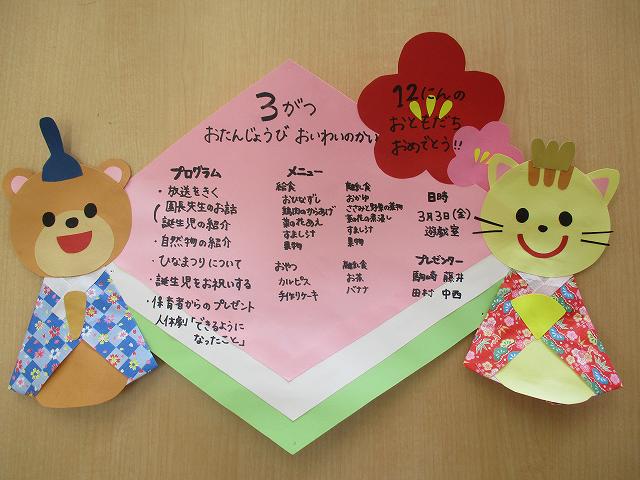 3がつ
おたんじょうび おいわいのかい
12にんの
おともだち
おめでとう!!
プログラム
・放送をきく
園長先生のお話
誕生児の紹介
・自然物の紹介
・ひなまつりについて
・誕生児をお祝いする
・保育者からのプレゼント
人体劇「できるように
なったこと」
メニュー
給食
おひなずし
鶏肉のからあげ
菜の花あえ
すましうけ
果物
おやつ
カルピス
手作りケーキ
離乳食
おかゆ
ささみと野菜の煮物
菜の花の煮浸し
すましうけ
果物
離乳食
お茶
バナナ
日時
3月3日(金)
遊戯室
プレゼンター
駒崎 藤井
田村 中西